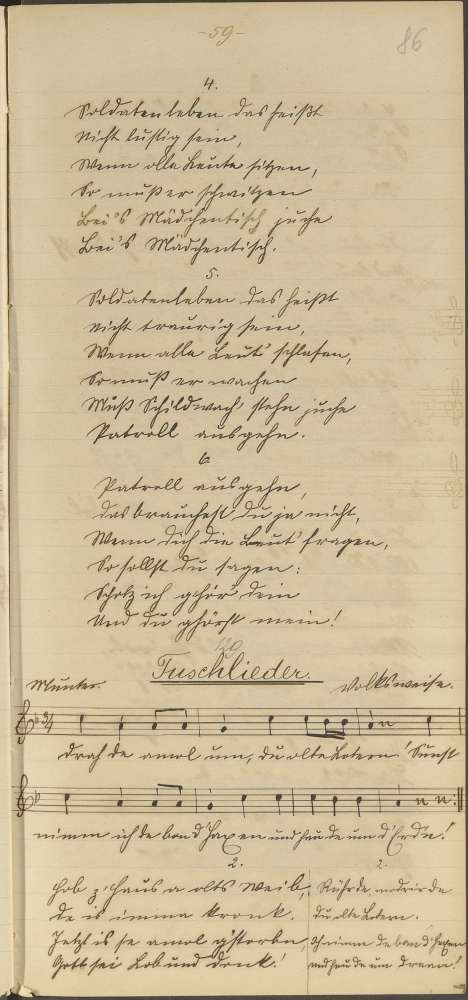 -59-
86
4.
Soldatenleben das heißt
nicht lustig sein,
Wenn alle Leute sitzen,
So muß er schwitzen
Bei's Mädchentisch juche
Bei's Mädchentisch.
5.
Soldatenleben das heißt
nicht traurig sein,
Wenn alle Leut' schlafen,
So muß er wachen
Muß Schildwach' stehn juche
Patroll ausgehn.
6.
Patroll ausgehn,
das brauchest du ja nicht,
Wenn dich die Leut' fragen,
So sollst du sagen:
Schatz ich g'hör' dein
Und du g'hörst mein!
120
Tuschlieder.
Munter. Volksweise.
3/4
Drah de amol um, du olte Lotern! Sunst
nimm ich de ban d'Haxen und hau de um d'Erd'n!
2.
Hob z'Haus a olts Weib,
de is imma kronk.
Jetzt is se amol g'storbn,
Gott sei Lob und Donk!
2.
Rühr de, odrir de
Du olte Lotern.
I nimm de ban d'Haxen
und hau de um